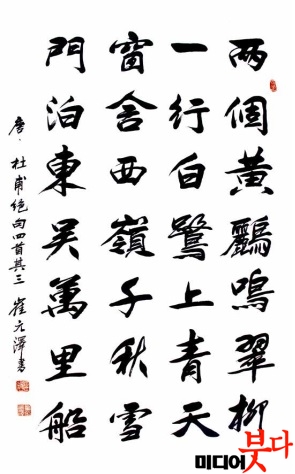 两個黃鸝鳴翠柳
一行白鷺上青天
窗含西嶺千秋雪
門泊東吳萬里船
唐·杜甫绝句四首其三 崔元澤書
미디어붓다